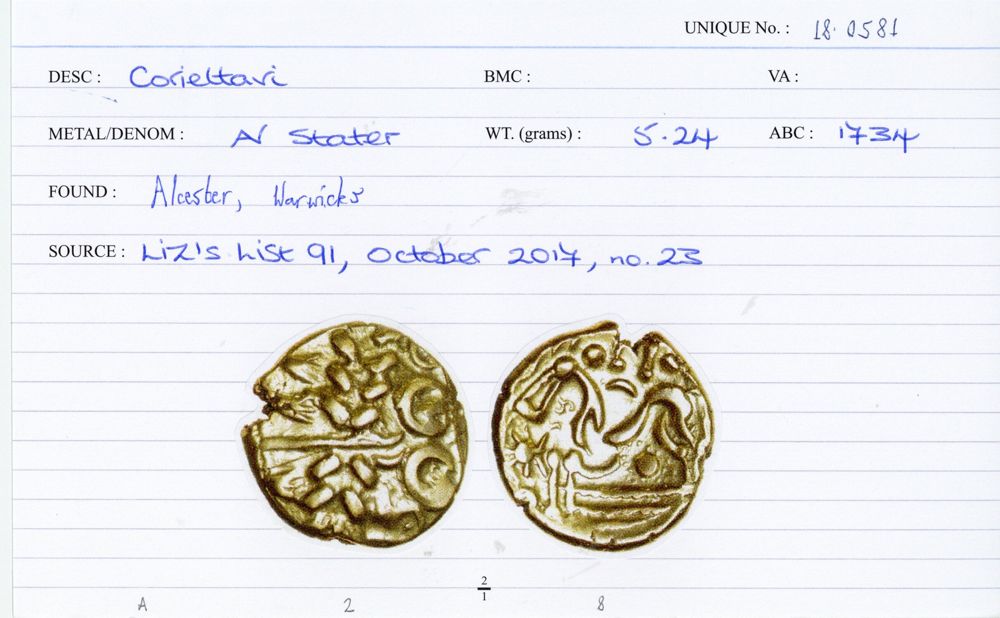 UNIQUE No. : 18.0581
DESC : Corieltavi BMC : VA :
METAL/DENOM : AV Stater WT. (grams) : 5.24 ABC : 1734
FOUND : Alcester, Warwicks
SOURCE : Liz's List 91, October 2017, no. 23
2
1
A 2 8